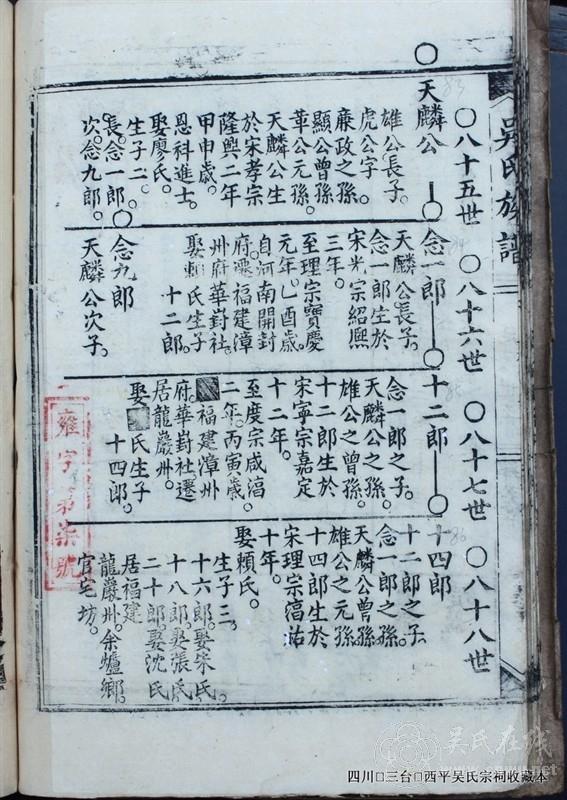 吳氏族譜
○八十五世
○八十六世
○八十七世
○八十八世
○天麟公
雄公長子。
虎公字。
廉政之孫
顯公曾孫
華公元孫。
天麟公生
於宋孝宗
隆興二年
甲申歲。
恩科進士。
娶廖氏。
生子二。
長。念一郎。
次。念九郎。
○念一郎
天麟公長子。
念一郎生於
宋光宗紹熙
三年。
至理宗寶慶
元年。乙酉歲。
自河南開封
府。遷福建漳
州府華葑社。
娶賴氏生子
十二郎。
○念九郎
天麟公次子。
○十二郎
念一郎之子。
天麟公之孫。
雄公之曾孫。
十二郎生於
宋寧宗嘉定
十二年。
至度宗咸淳
二年。丙寅歲。
福建漳州
府。華葑社遷
居龍巖州。
娶 氏生子
十四郎。
○十四郎
十二郎之子。
念一郎之孫。
天麟公曾孫
雄公之元孫
十四郎生於
宋理宗淳祐
十年。
娶賴氏。
生子三。
十六郎。娶宋氏。
十八郎。娶張氏
二十郎。娶沈氏
居福建
龍巖州。余爐鄉。
官宅坊。
雍字第柒號
吴氏在线
四川□三台□西平吴氏宗祠收藏本